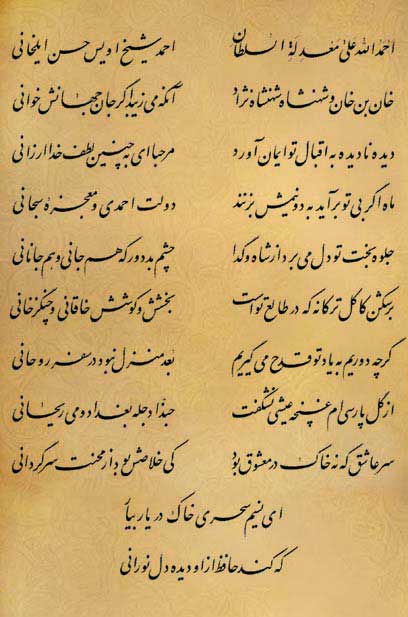 احمد الله علی معدلة السلطان احمد شیخ اویس حسن ایلخانی
خان بن خان و شهنشاه شهنشاه نژاد آنکه می زیبد اگر جان جهانش خوانی
دیده نادیده به اقبال تو ایمان آورد مرحبا ای به چنین لطف خدا ارزانی
ماه اگر بی تو برآید به دو نیمش بزنند دولت احمدی و معجزه سبحانی
جلوه بخت تو دل می برد از شاه و گدا چشم بد دور که هم جانی و هم جانانی
برشکن کاکل ترکانه که در طالع تو است بخشش و کوشش خاقانی و چنگزخانی
گرچه دوریم به یاد تو قدح می گیریم بعد منزل نبود در سفر روحانی
از گل پارسی ام غنچه عیشی نشکفت حبذا دجله بغداد و می ریحانی
سر عاشق که نه خاک در معشوق بود کی خلاصش بود از محنت سرگردانی
ای نسیم سحری خاک در یار بیار
که کند حافظ از او دیده دل نورانی